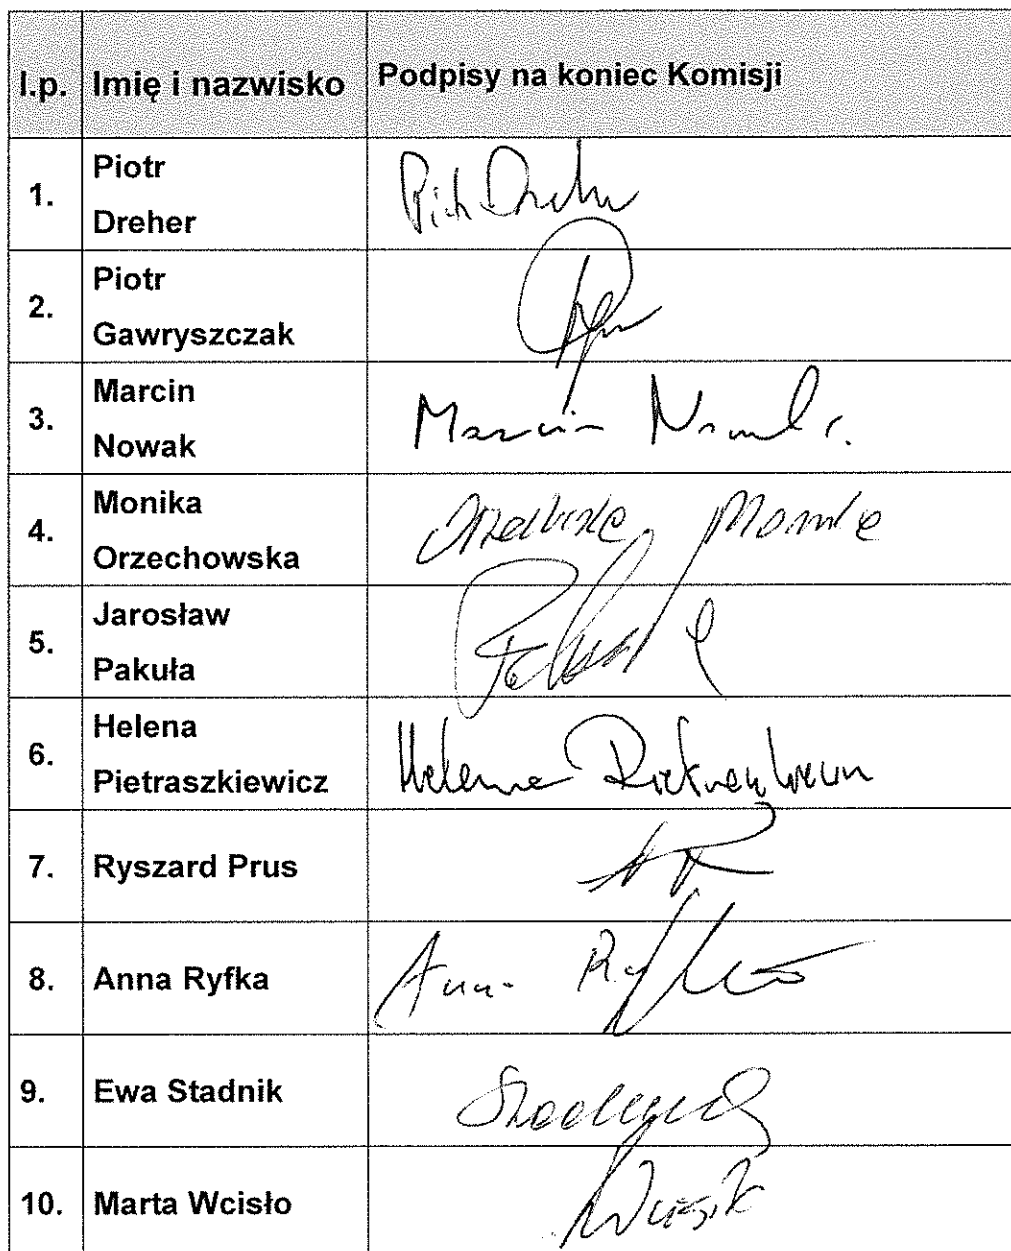 l.p. Imię i nazwisko Podpisy na koniec Komisji
1. Piotr
Dreher
Piotr Dreher
2. Piotr
Gawryszczak
3. Marcin
Nowak
Marcin Nowak
4. Monika
Orzechowska
Orzechowska Monika
5. Jarosław
Pakuła
6. Helena
Pietraszkiewicz
Helena Pietraszkiewicz
7. Ryszard Prus
8. Anna Ryfka
Anna Ryfka
9. Ewa Stadnik
10. Marta Wcisło